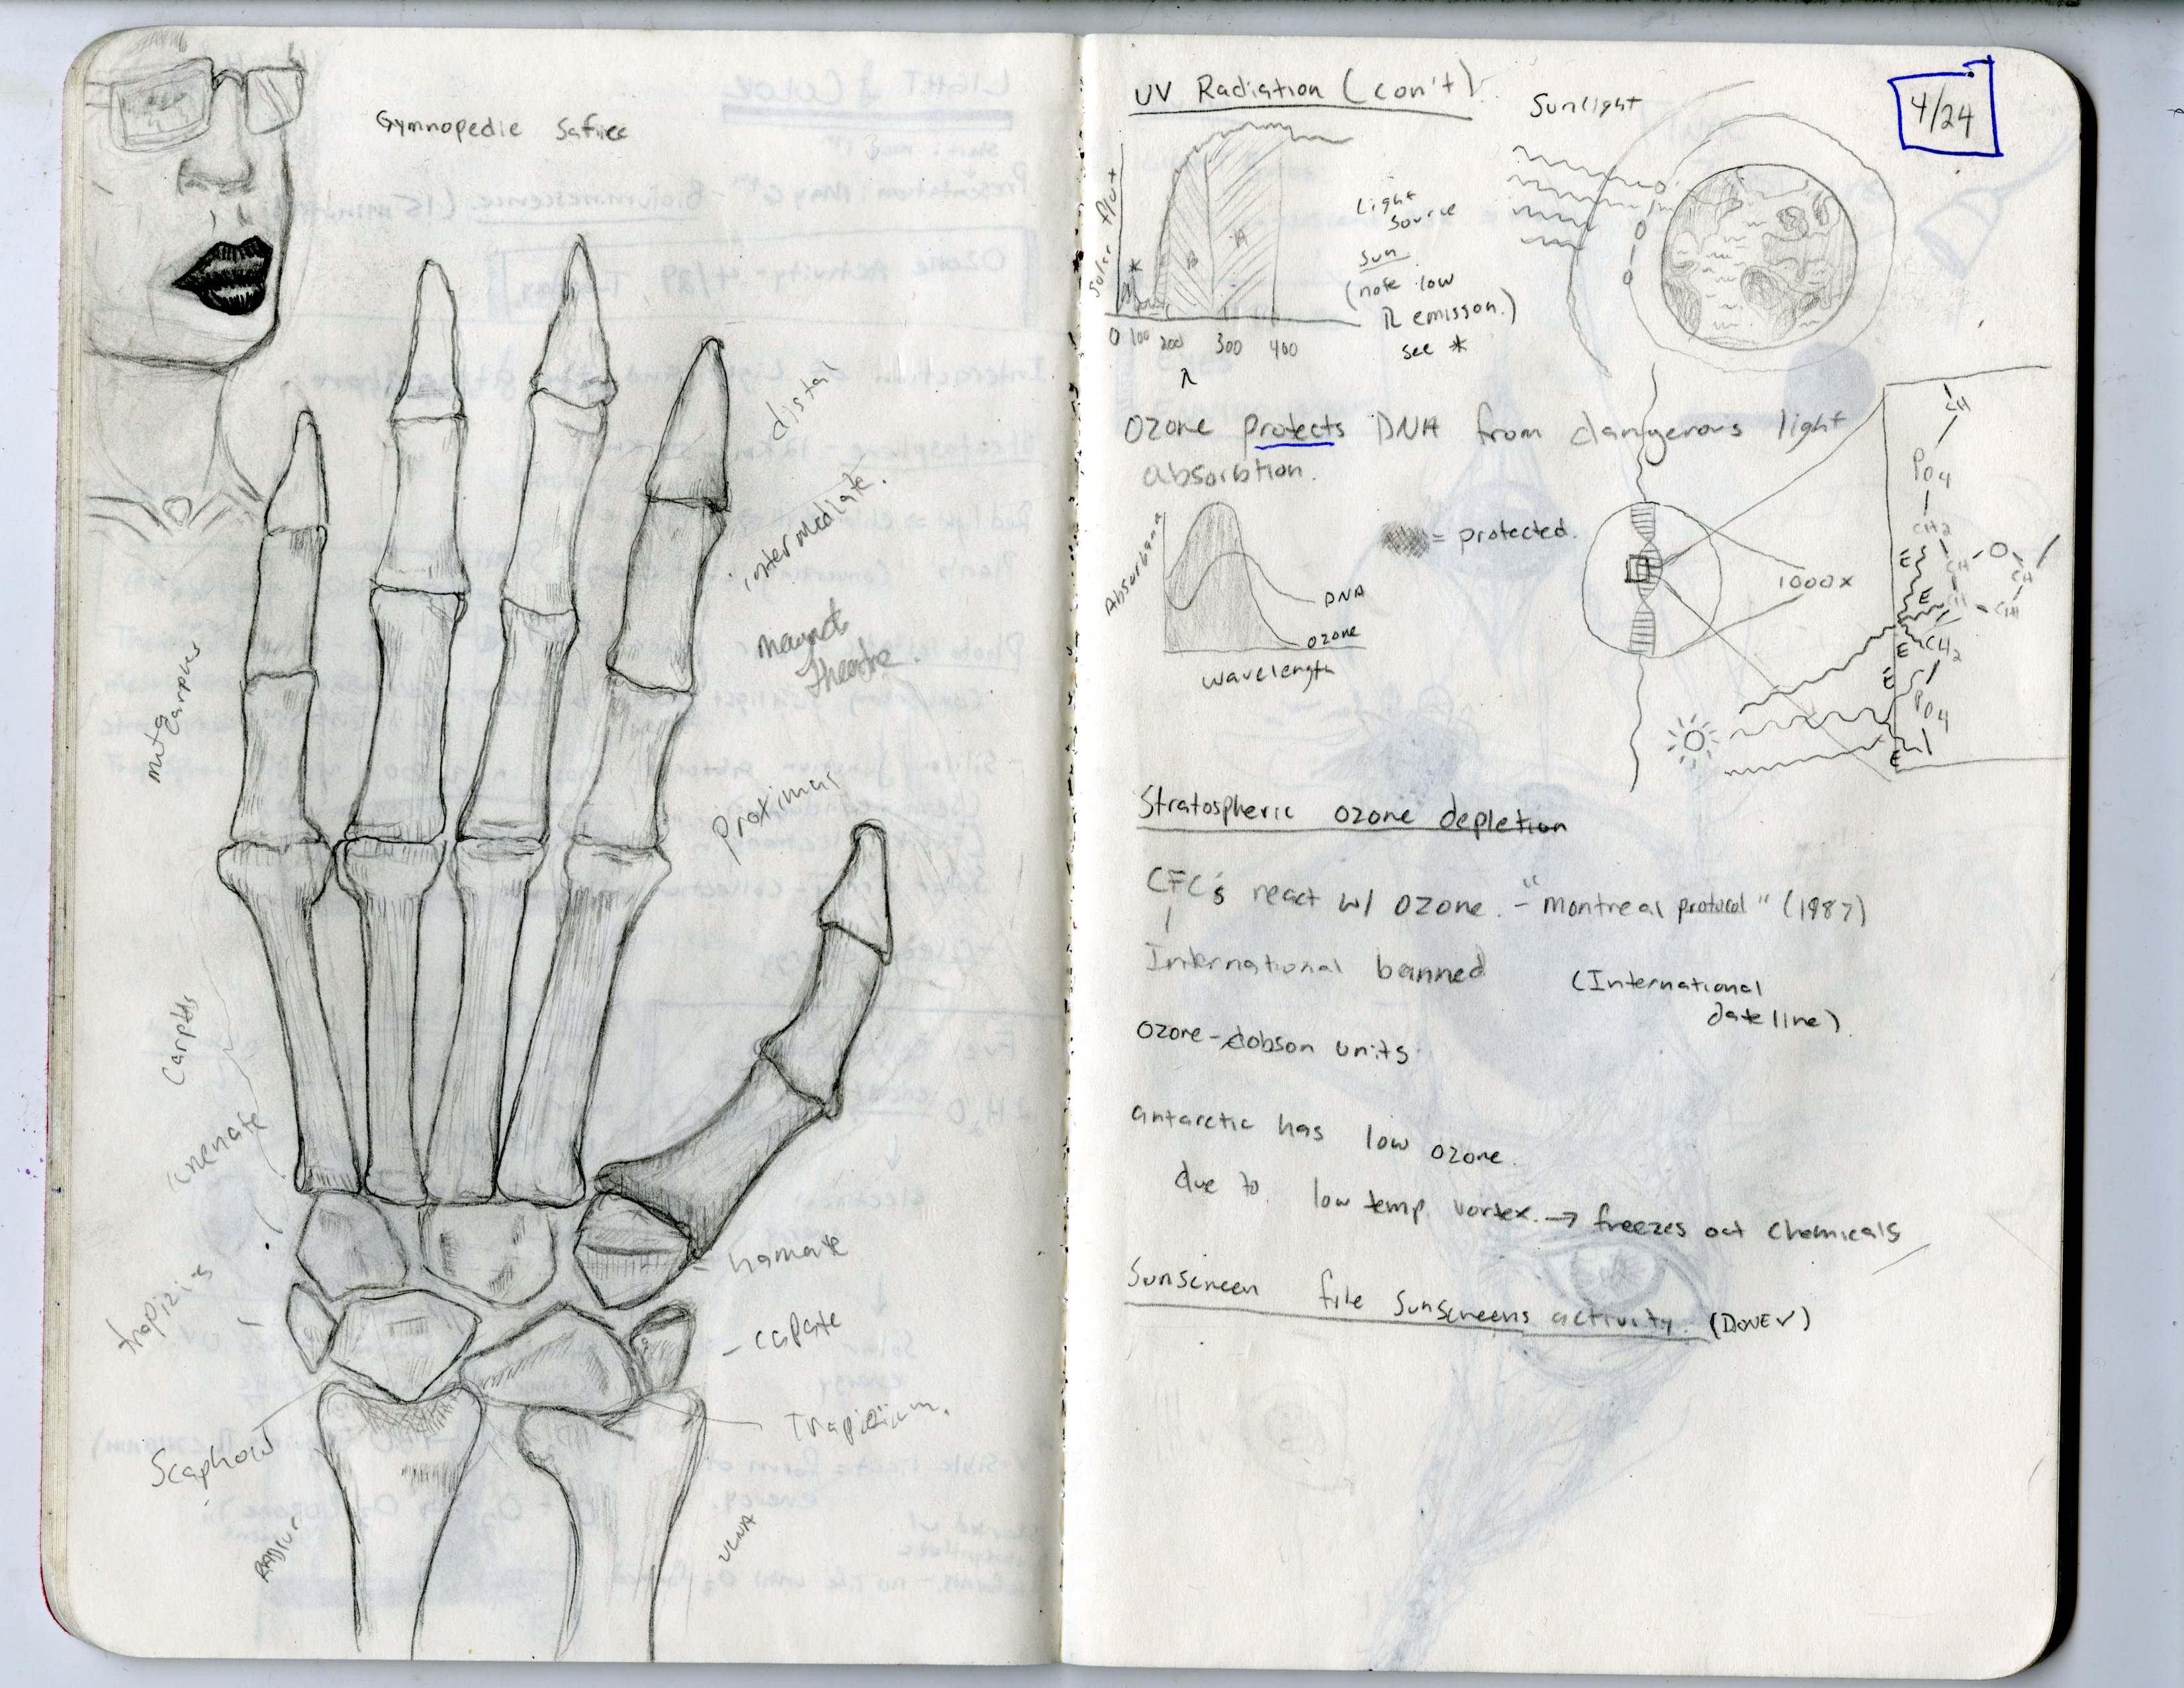 Gymnopedie Safiee
distal
intermediate.
meta
carpus
proximal
Carpals
hamate
capate
Trapizium.
Scaphoid
Radius
ULNA
UV Radiation (con't)
4/24
Sunlight
Solar flux
*
B
A
0 100 200 300 400
λ
Light
source
sun
(note low
λ emisson.)
see *
Ozone protects DNA from dangerous light
absorbtion.
Absorbana
DNA
ozone
wavelength
= protected.
1000x
CH
PO4
CH2
E
CH
O
CH
E
CH
CH
E
CH2
E
PO4
E
Stratospheric ozone depletion
CFC's react w/ ozone. - "Montreal protocol" (1987)
International banned
(International
dateline).
Ozone - dobson units
antarctic has low ozone.
due to low temp vortex. → freezes out chemicals
Sunscreen file sunscreens activity. (DONE ✓)